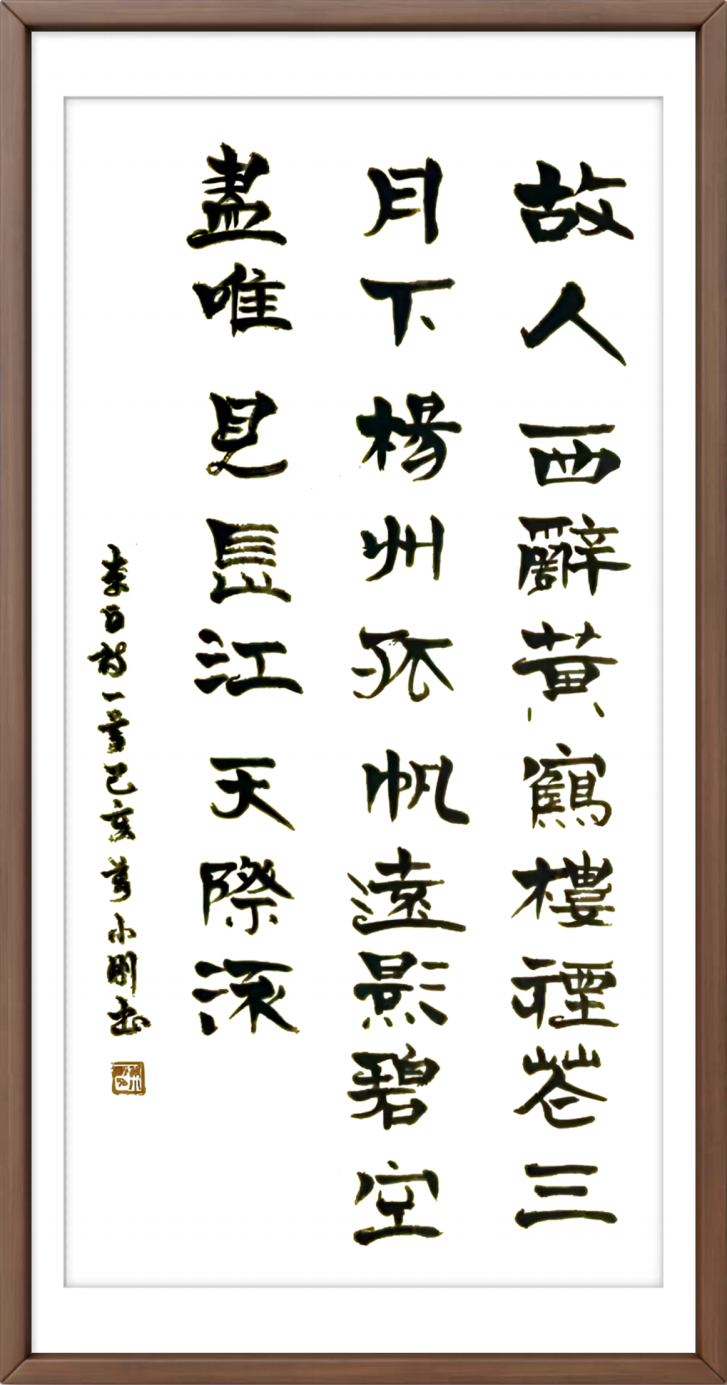 故人西辭黃鶴樓煙花三
月下楊州孤帆遠影碧空
盡唯見長江天際流
李白詩一首己亥小剛書